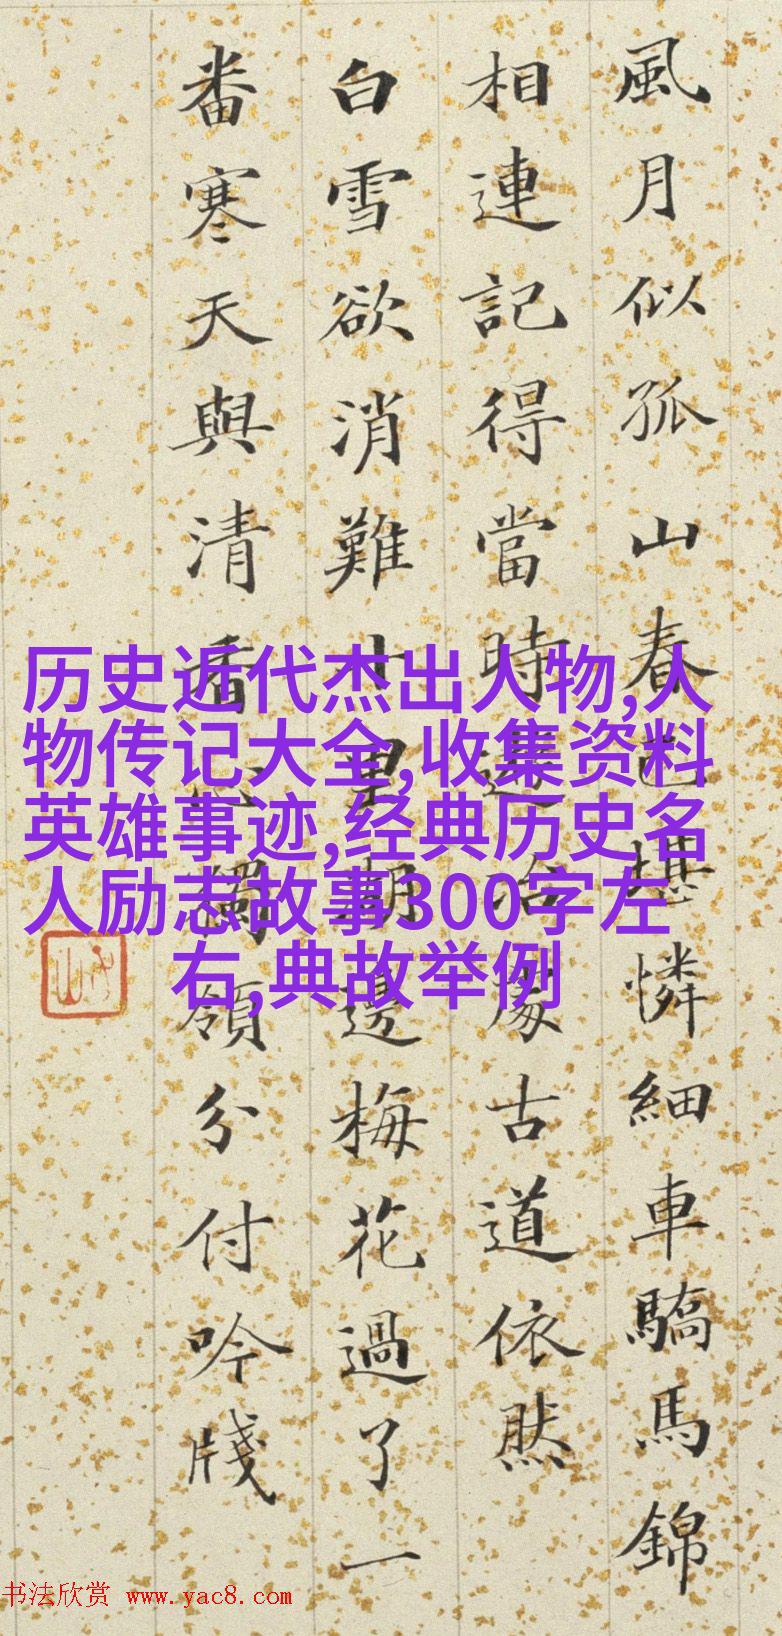 風月似孤山春堪憐細車驕馬錦
相連記得當時冶處古道依然
白雪欲消難十里湖邊梅花過了一
番寒天與清香心獨領分付吟牋
历史近代杰出人物,人
物传记大全,收集资料
英雄事迹,经典历史名
人励志故事300字左
右,典故举例
书法欣赏 www.yac8.com